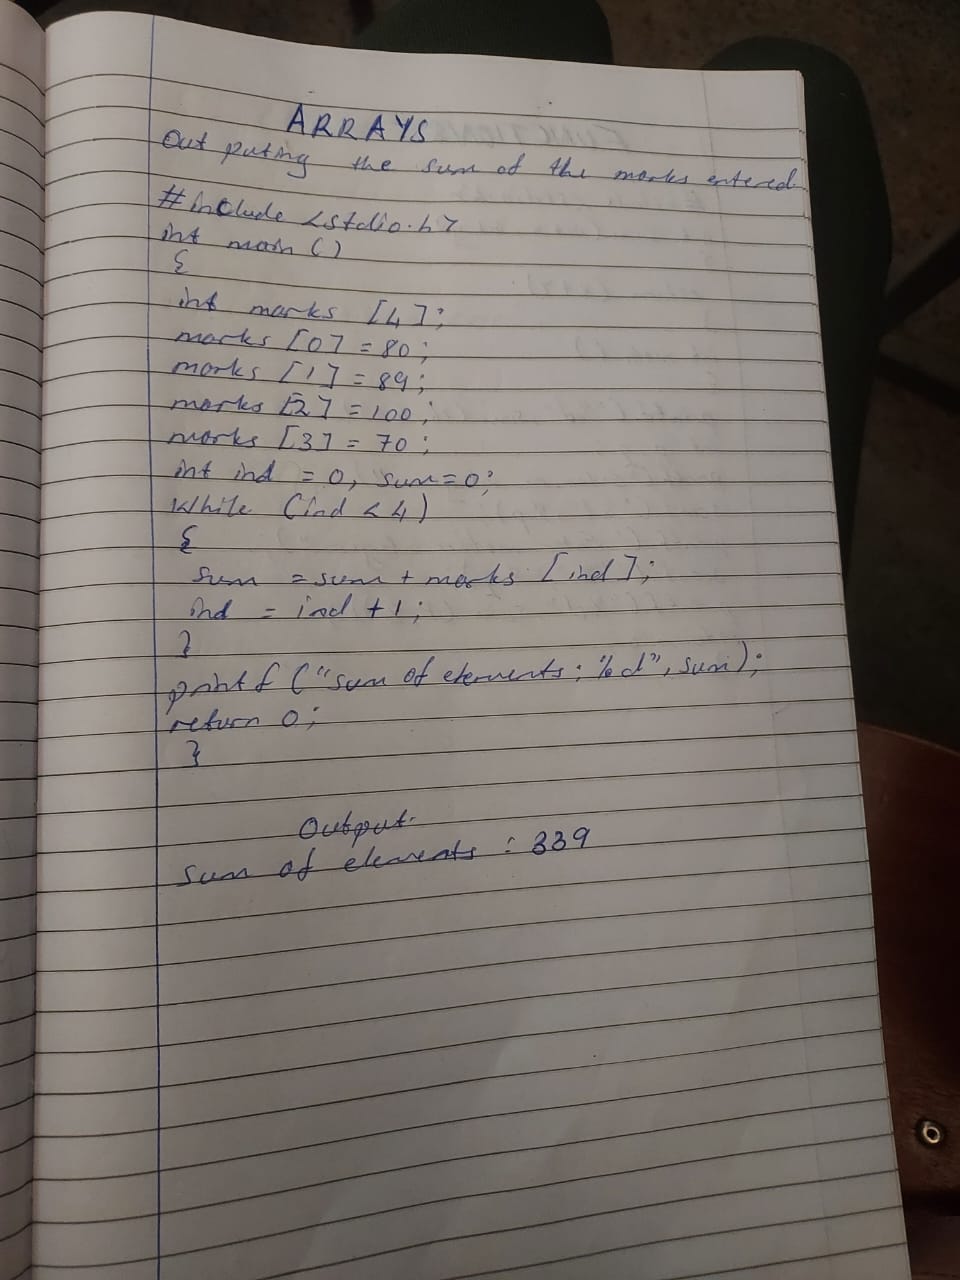 ARRAYS
Out puting the sum of the marks entered.
#include <stdio.h>
int main ()
{
int marks [4];
marks [0] = 80;
marks [1] = 89;
marks [2] = 100;
marks [3] = 70;
int ind = 0, sum=0;
While (ind < 4)
{
sum = sum + marks [ind];
ind = ind +1;
}
printf ("sum of elements: %d", sum);
return 0;
}
Output.
Sum of elements : 339